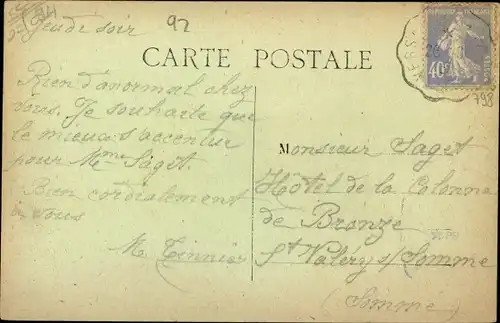 Jeudi soir
92
CARTE POSTALE
40c
798
Rien d'anormal chez
vous. Je souhaite que
le mieux s'accentue
pour Mme Saget.
Bien cordialement
à vous
Monsieur Saget
Hôtel de la Colonne
de Bronze
St Valéry s/ Somme
(Somme)